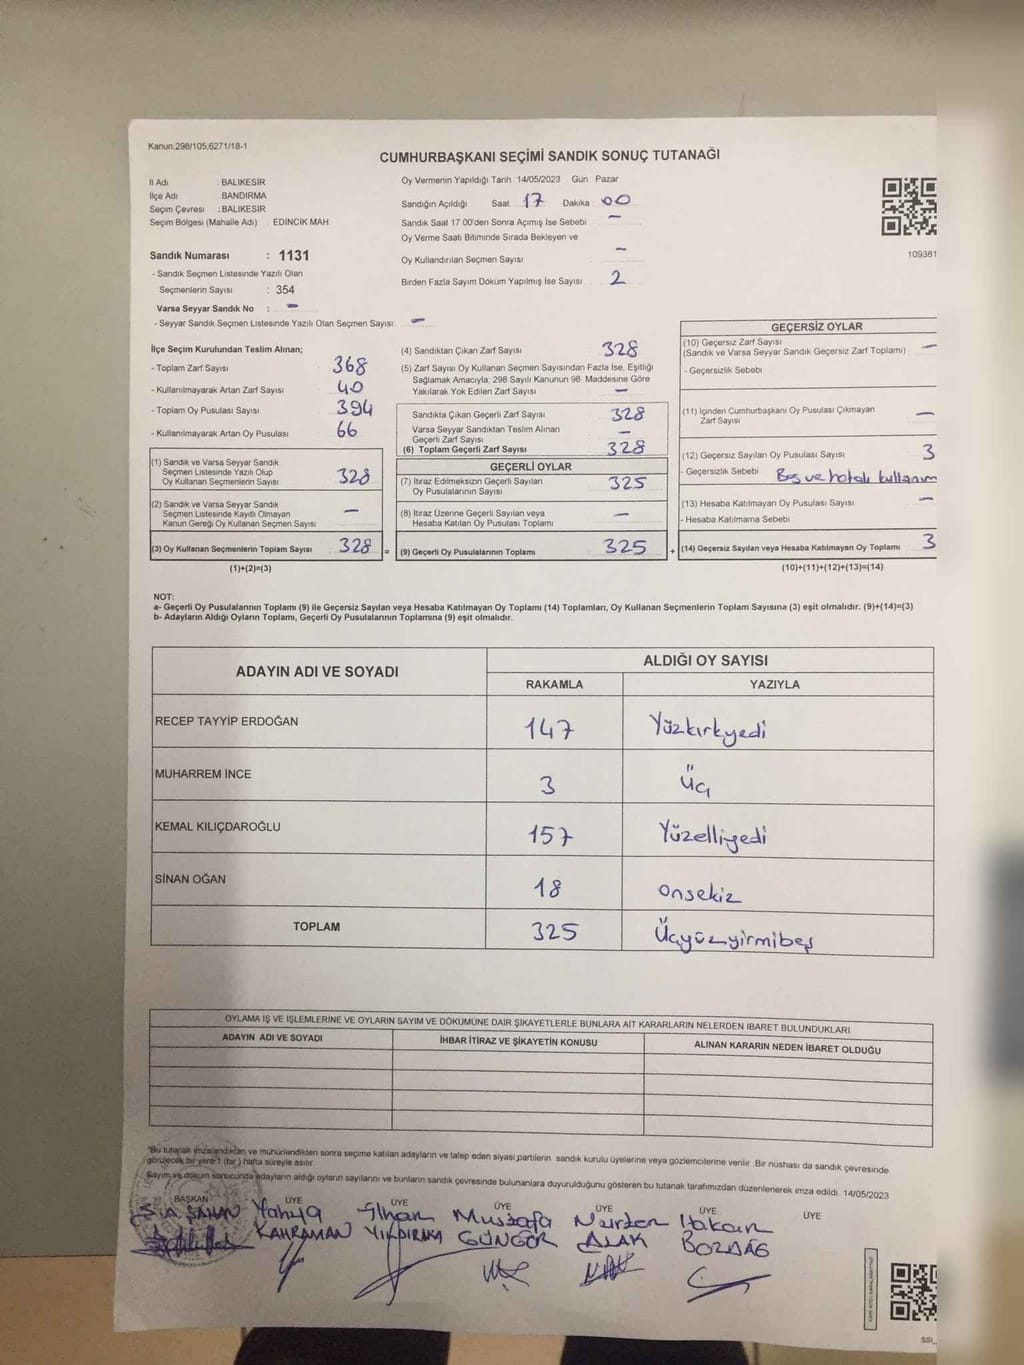 Kanun,298/105,6271/18-1
CUMHURBAŞKANI SEÇİMİ SANDIK SONUÇ TUTANAĞI
İl Adı : BALIKESİR
İlçe Adı : BANDIRMA
Seçim Çevresi : BALIKESİR
Seçim Bölgesi (Mahalle Adı) : EDİNCİK MAH
Oy Vermenin Yapıldığı Tarih 14/05/2023 Gün Pazar
Sandığın Açıldığı Saat 17 Dakika 00
Sandık Saat 17 00'den Sonra Açımış İse Sebebi –
Oy Verme Saati Bitiminde Sırada Bekleyen ve
Oy Kullandırılan Seçmen Sayısı –
Birden Fazla Sayım Döküm Yapılmış İse Sayısı 2
109381
Sandık Numarası : 1131
- Sandık Seçmen Listesinde Yazılı Olan
Seçmenlerin Sayısı : 354
Varsa Seyyar Sandık No : –
- Seyyar Sandık Seçmen Listesinde Yazılı Olan Seçmen Sayısı –
İlçe Seçim Kurulundan Teslim Alınan;
- Toplam Zarf Sayısı 368
- Kullanılmayarak Artan Zarf Sayısı 40
- Toplam Oy Pusulası Sayısı 394
- Kullanılmayarak Artan Oy Pusulası 66
(1) Sandık ve Varsa Seyyar Sandık
Seçmen Listesinde Yazılı Olup
Oy Kullanan Seçmenlerin Sayısı 328
(2) Sandık ve Varsa Seyyar Sandık
Seçmen Listesinde Kayıtlı Olmayan
Kanun Gereği Oy Kullanan Seçmen Sayısı –
(3) Oy Kullanan Seçmenlerin Toplam Sayısı 328 =
(1)+(2)=(3)
(4) Sandıktan Çıkan Zarf Sayısı 328
(5) Zarf Sayısı Oy Kullanan Seçmen Sayısından Fazla İse, Eşitliği
Sağlamak Amacıyla; 298 Sayılı Kanunun 98. Maddesine Göre
Yakılarak Yok Edilen Zarf Sayısı –
Sandıkta Çıkan Geçerli Zarf Sayısı 328
Varsa Seyyar Sandıktan Teslim Alınan
Geçerli Zarf Sayısı –
(6) Toplam Geçerli Zarf Sayısı 328
GEÇERLİ OYLAR
(7) İtiraz Edilmeksizin Geçerli Sayılan
Oy Pusulalarının Sayısı 325
(8) İtiraz Üzerine Geçerli Sayılan veya
Hesaba Katılan Oy Pusulası Toplamı –
(9) Geçerli Oy Pusulalarının Toplamı 325 +
GEÇERSİZ OYLAR
(10) Geçersiz Zarf Sayısı
(Sandık ve Varsa Seyyar Sandık Geçersiz Zarf Toplamı) –
- Geçersizlik Sebebi
(11) İçinden Cumhurbaşkanı Oy Pusulası Çıkmayan
Zarf Sayısı –
(12) Geçersiz Sayılan Oy Pusulası Sayısı 3
- Geçersizlik Sebebi Boş ve hatalı kullanım
(13) Hesaba Katılmayan Oy Pusulası Sayısı –
- Hesaba Katılmama Sebebi
(14) Geçersiz Sayılan veya Hesaba Katılmayan Oy Toplamı 3
(10)+(11)+(12)+(13)=(14)
NOT:
a- Geçerli Oy Pusulalarının Toplamı (9) ile Geçersiz Sayılan veya Hesaba Katılmayan Oy Toplamı (14) Toplamları, Oy Kullanan Seçmenlerin Toplam Sayısına (3) eşit olmalıdır. (9)+(14)=(3)
b- Adayların Aldığı Oyların Toplamı, Geçerli Oy Pusulalarının Toplamına (9) eşit olmalıdır.
ADAYIN ADI VE SOYADI
ALDIĞI OY SAYISI
RAKAMLA YAZIYLA
RECEP TAYYİP ERDOĞAN 147 Yüzkırkyedi
MUHARREM İNCE 3 Üç
KEMAL KILIÇDAROĞLU 157 Yüzelliyedi
SİNAN OĞAN 18 onsekiz
TOPLAM 325 Üçyüzyirmibeş
OYLAMA İŞ VE İŞLEMLERİNE VE OYLARIN SAYIM VE DÖKÜMÜNE DAİR ŞİKAYETLERLE BUNLARA AİT KARARLARIN NELERDEN İBARET BULUNDUKLARI
ADAYIN ADI VE SOYADI İHBAR İTİRAZ VE ŞİKAYETİN KONUSU ALINAN KARARIN NEDEN İBARET OLDUĞU
*Bu tutanak imzalandıktan ve mühürlendikten sonra seçime katılan adayların ve talep eden siyasi partilerin sandık kurulu üyelerine veya gözlemcilerine verilir. Bir nüshası da sandık çevresinde
görülecek bir yere 1 (bir) hafta süreyle asılır.
Sayım ve döküm sonucunda adayların aldığı oyların sayılarını ve bunların sandık çevresinde bulunanlara duyurulduğunu gösteren bu tutanak tarafımızdan düzenlenerek imza edildi. 14/05/2023
BAŞKAN ÜYE ÜYE ÜYE ÜYE ÜYE ÜYE
Yahya İlhan Mustafa Nurten Hakan
KAHRAMAN YILDIRIM GÜNGÖR ALAK BOZDAĞ
SSİ_